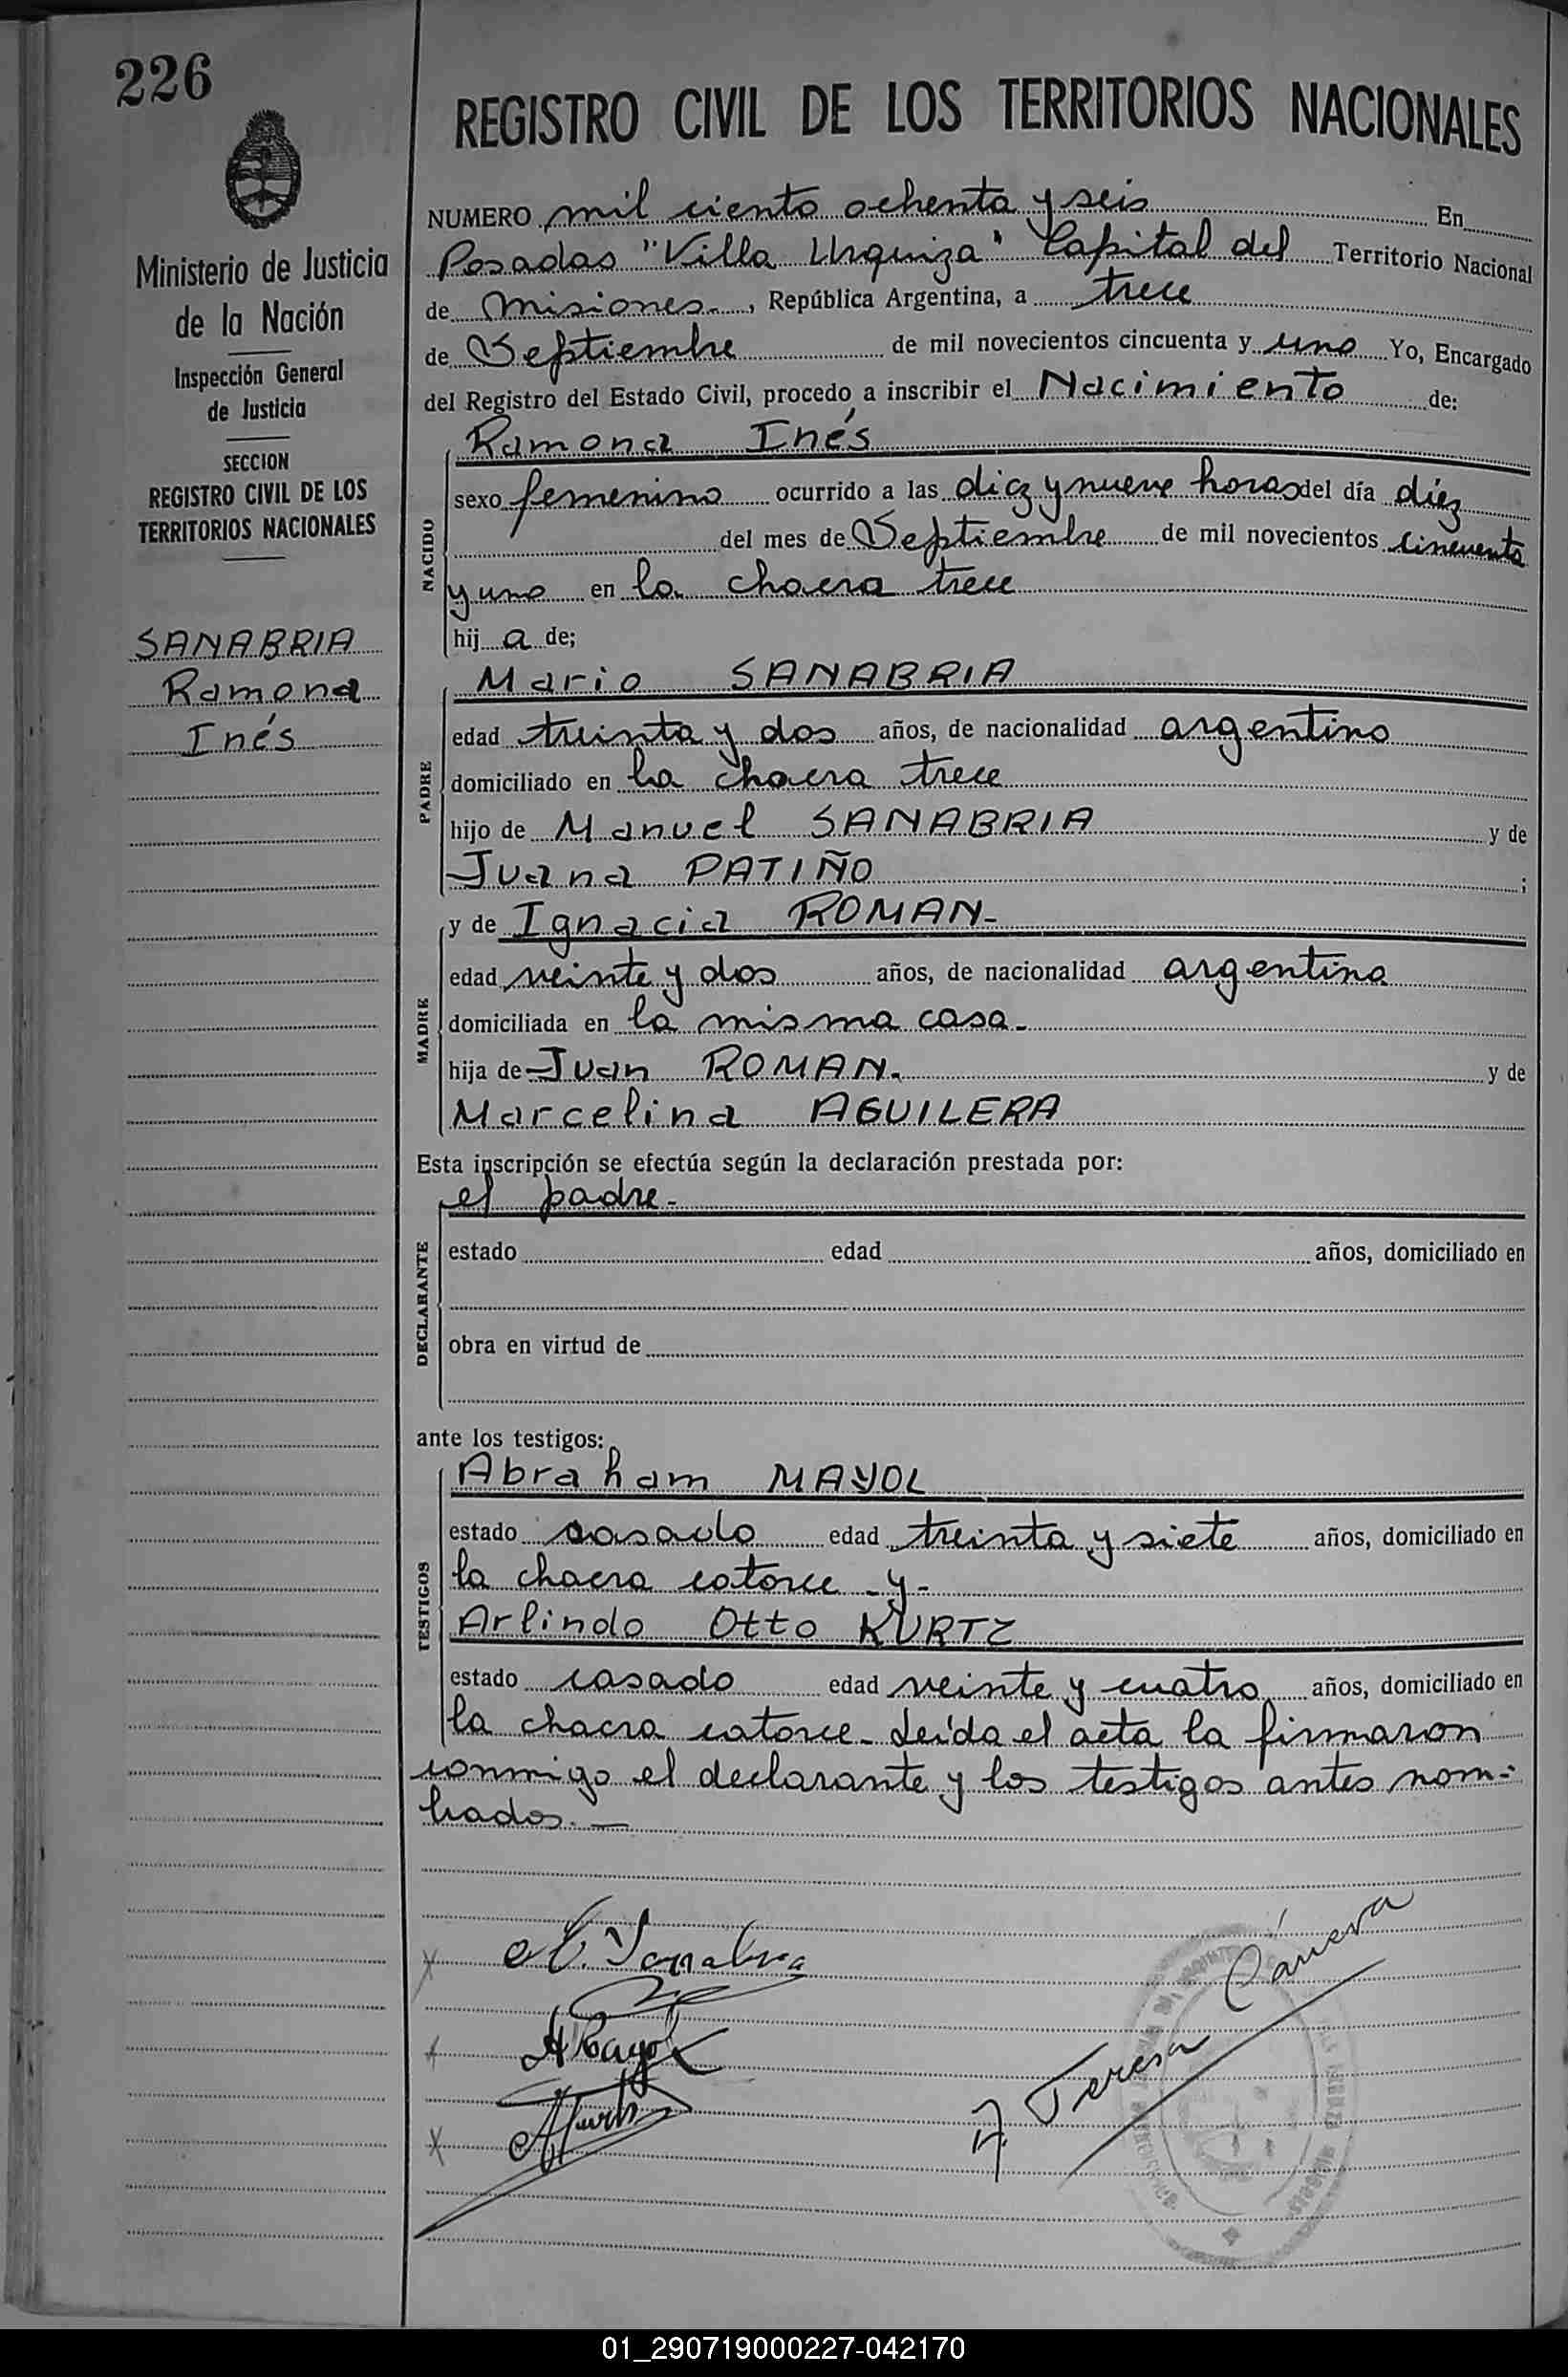 226
REGISTRO CIVIL DE LOS TERRITORIOS NACIONALES
Ministerio de Justicia
de la Nación
Inspección General
de Justicia
SECCION
REGISTRO CIVIL DE LOS
TERRITORIOS NACIONALES
SANABRIA
Ramona
Inés
NUMERO mil ciento ochenta y seis En
Posadas "Villa Urquiza" Capital del Territorio Nacional
de Misiones., República Argentina, a trece
de Septiembre de mil novecientos cincuenta y uno Yo, Encargado
del Registro del Estado Civil, procedo a inscribir el Nacimiento de:
NACIDO
Ramona Inés
sexo femenino ocurrido a las diez y nueve horas del día diez
del mes de Septiembre de mil novecientos cincuenta
y uno en la chacra trece
hij a de;
PADRE
Mario SANABRIA
edad treinta y dos años, de nacionalidad argentino
domiciliado en la chacra trece
hijo de Manuel SANABRIA y de
Juana PATIÑO ;
MADRE
y de Ignacia ROMAN-
edad veinte y dos años, de nacionalidad argentina
domiciliada en la misma casa-
hija de Juan ROMAN. y de
Marcelina AGUILERA
Esta inscripción se efectúa según la declaración prestada por:
DECLARANTE
el padre-
estado edad años, domiciliado en
obra en virtud de
ante los testigos:
TESTIGOS
Abraham MAYOL
estado casado edad treinta y siete años, domiciliado en
la chacra catorce -y-
Arlindo Otto KURTZ
estado casado edad veinte y cuatro años, domiciliado en
la chacra catorce- Leída el acta la firmaron
conmigo el declarante y los testigos antes nom-
brados.-
M. Sanabria
A Mayol
A Kurtz
Teresa Cáneva
01_290719000227-042170